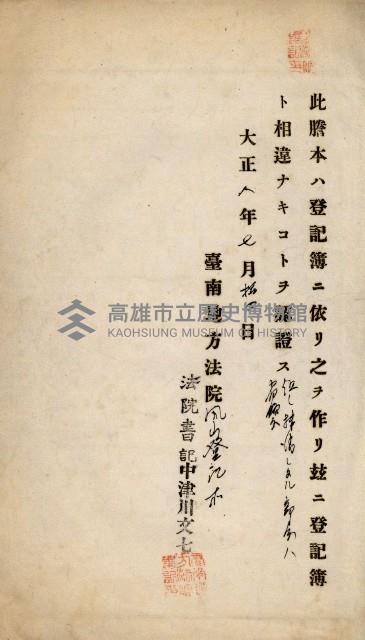 此謄本ハ登記簿ニ依リ之ヲ作リ玆ニ登記簿
ト相違ナキコトヲ認證ス
大正八年七月拾 日
臺南地方法院鳳山登記所
法院書記中津川文七
高雄市立歷史博物館
KAOHSIUNG MUSEUM OF HISTORY